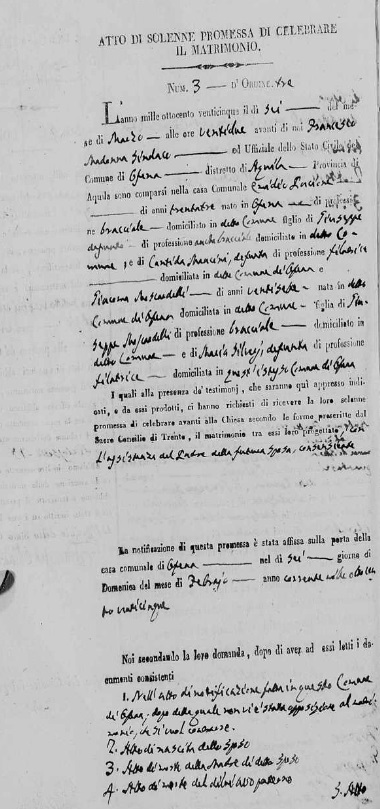 ATTO DI SOLENNE PROMESSA DI CELEBRARE
IL MATRIMONIO.
NUM. 3 — D'ORDINE tre
L'anno mille ottocento venticinque il dì sei — del me-
se di Marzo — alle ore ventidue avanti di noi Francesco
Madonna Sindaco — ed Uffiziale dello Stato Civile del
Comune di Ofena — distretto di Aquila — Provincia di
Aquila sono comparsi nella casa Comunale
— di anni trentatre nato in Ofena — di professio-
ne bracciale — domiciliato in detto Comune figlio di Giuseppe
defunto — di professione anche bracciale domiciliato in detto Co-
mune, e di Candida Mancini, defunta di professione filatrice
— domiciliata in detto Comune di Ofena e
Giacoma Moscardelli — di anni ventisette — nata in detto
Comune di Ofena domiciliata in detto Comune — figlia di Giu-
seppe Moscardelli di professione bracciale — domiciliato in
detto Comune — e di Maria Silveri, defunta di professione
filatrice — domiciliata in quest'istesso Comune di Ofena
I quali alla presenza de' testimonj, che saranno quì appresso indi-
cati, e da essi prodotti, ci hanno richiesti di ricevere la loro solenne
promessa di celebrare avanti alla Chiesa secondo le forme prescritte dal
Sacro Concilio di Trento, il matrimonio tra essi loro progettato, con
l'assistenza del Padre della futura sposa, consenziente
La notificazione di questa promessa è stata affissa sulla porta della
casa comunale di Ofena — nel dì sei — giorno di
Domenica del mese di Febrajo — anno corrente mille ottocen-
to venticinque
Noi secondando la loro domanda, dopo di aver ad essi letti i do-
cumenti consistenti
1. Nell'atto di notificazione fatta in questo Comune
di Ofena, dopo della quale non vi è stata opposizione al matri-
monio,
2. Atto di nascita dello Sposo
3. Atto di morte della Madre di detto Sposo
4. Atto di morte del di lui avo paterno
5. Atto